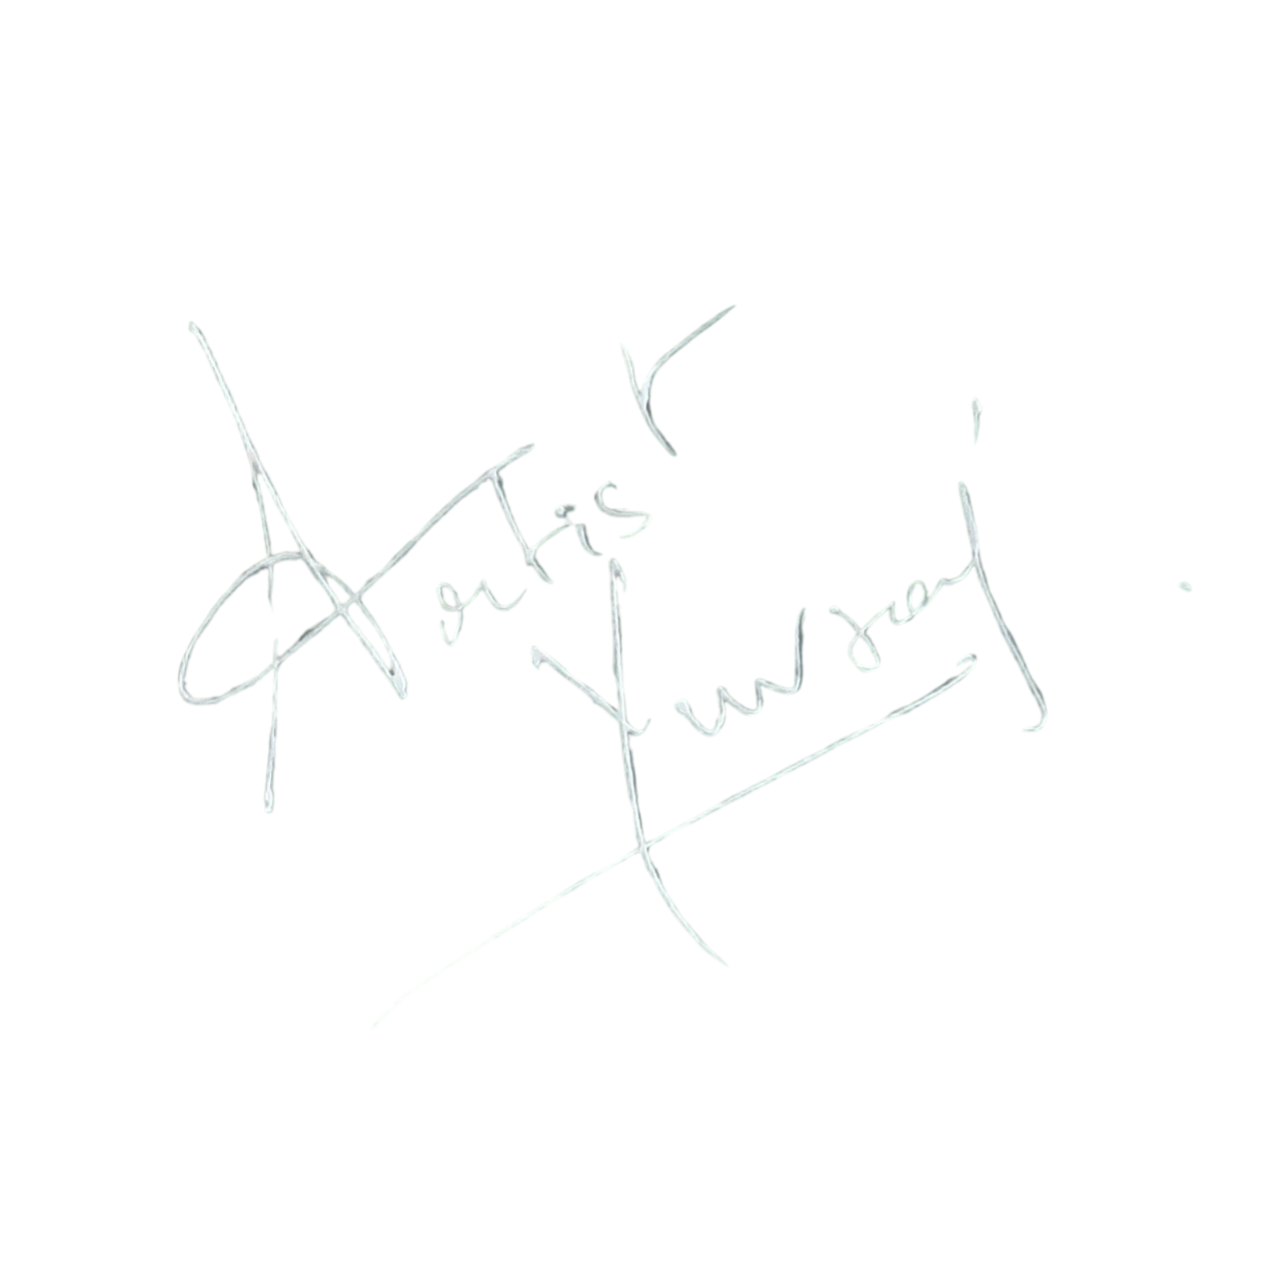 Artist
Yuvraj